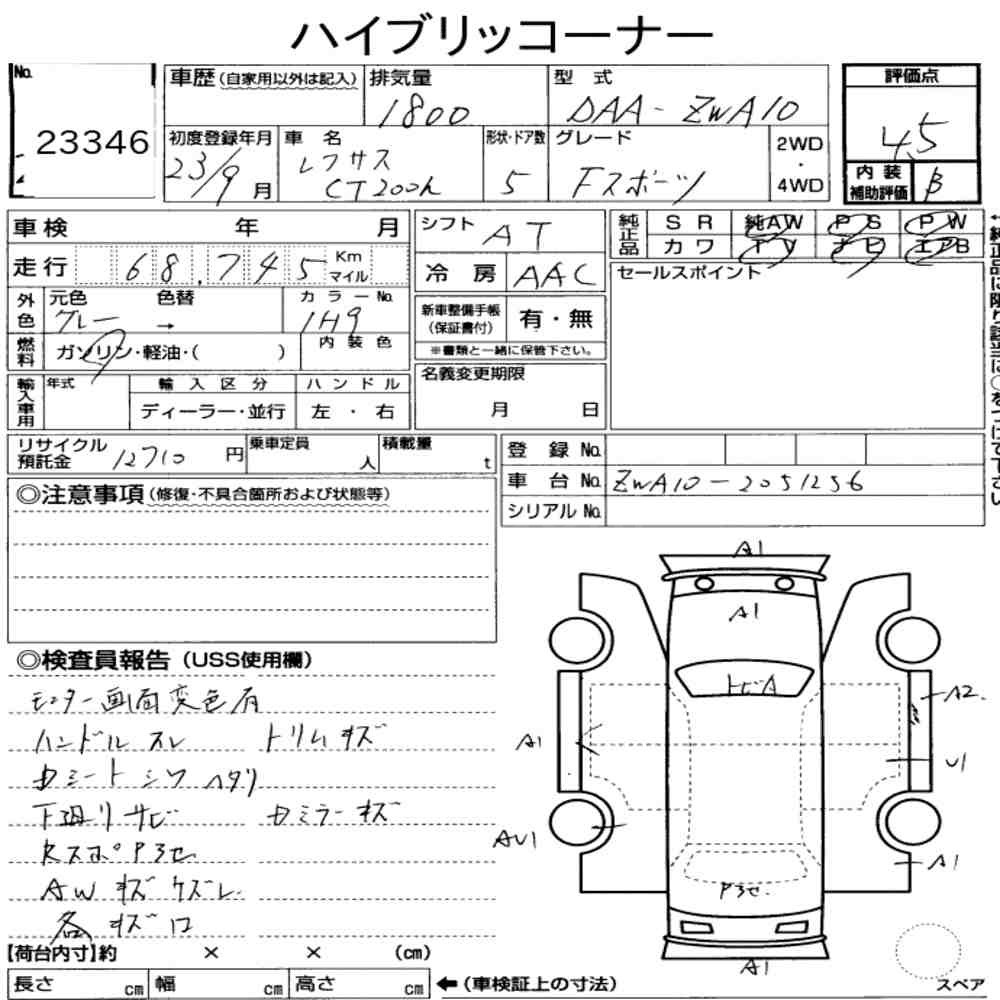 ハイブリッコーナー
No.
23346
車歴(自家用以外は記入)
排気量
1800
型 式
DAA-ZWA10
評価点
4.5
初度登録年月
23/9月
車 名
レクサス
CT200h
形状・ドア数
5
グレード
Fスポーツ
2WD
・
4WD
内 装
補助評価
B
車検 年 月
走行 68,745 Km
マイル
シフト AT
冷 房 AAC
純正品
SR 純AW PS PW
カワ TV ナビ エアB
セールスポイント
外色
元色 色替 カラーNo.
グレー → 1H9
燃料
ガソリン・軽油・( )
内 装 色
新車整備手帳
(保証書付)
有・無
※書類と一緒に保管下さい。
輸入車用
年式
輸 入 区 分
ハ ン ド ル
ディーラー・並行
左 ・ 右
名義変更期限
月 日
リサイクル
預託金 12710 円
乗車定員
人
積載量
t
登 録 No.
車 台 No. ZWA10-2051256
シリアル No.
◎注意事項(修復・不具合箇所および状態等)
◎検査員報告(USS使用欄)
モニター画面変色有
ハンドル スレ トリムキズ
シート シワ ヘタリ
下廻りサビ ミラーキズ
RスポP3セ
AWキズケズレ
各キズ
A1
A1
トビA
A2
A1
U1
AU1
A1
P3セ
A1
【荷台内寸】約 × × (cm)
長さ cm 幅 cm 高さ cm
←(車検証上の寸法)
スペア